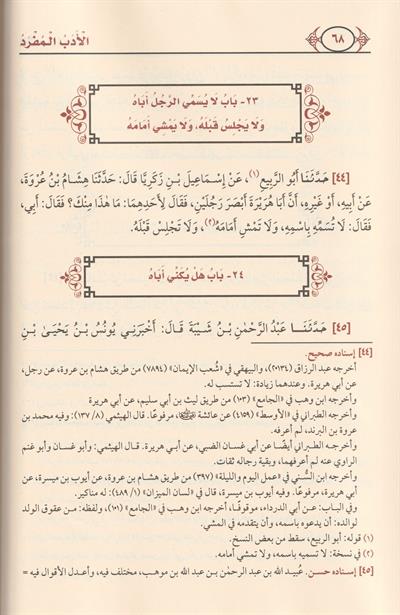 ٦٨
الْأَدَبُ الْمُفْرَدُ
٢٣- بَابُ لَا يُسَمِّي الرَّجُلُ أَبَاهُ
وَلَا يَجْلِسُ قَبْلَهُ، وَلَا يَمْشِي أَمَامَهُ
[٤٤] حَدَّثَنَا أَبُو الرَّبِيعِ(١)، عَنْ إِسْمَاعِيلَ بْنِ زَكَرِيَّا قَالَ: حَدَّثَنَا هِشَامُ بْنُ عُرْوَةَ،
عَنْ أَبِيهِ، أَوْ غَيْرِهِ، أَنَّ أَبَا هُرَيْرَةَ أَبْصَرَ رَجُلَيْنِ، فَقَالَ لِأَحَدِهِمَا: مَا هَٰذَا مِنْكَ؟ فَقَالَ: أَبِي،
فَقَالَ: لَا تُسَمِّهِ بِاسْمِهِ، وَلَا تَمْشِ أَمَامَهُ(٢)، وَلَا تَجْلِسْ قَبْلَهُ.
٢٤- بَابُ هَلْ يُكَنِّي أَبَاهُ
[٤٥] حَدَّثَنَا عَبْدُ الرَّحْمٰنِ بْنُ شَيْبَةَ قَالَ: أَخْبَرَنِي يُونُسُ بْنُ يَحْيَىٰ بْنِ
[٤٤] إسناده صحيح.
أخرجه عبد الرزاق (٢٠١٣٤)، والبيهقي في «شُعب الإيمان» (٧٨٩٤) من طريق هشام بن عروة، عن رجل،
عن أبي هريرة. وعندهما زيادة: لا تستسب له.
وأخرجه ابن وهب في «الجامع» (١٠٣) من طريق ليث بن أبي سليم، عن أبي هريرة
وأخرجه الطبراني في «الأوسط» (٤١٥٩) عن عائشة، مرفوعًا. قال الهيثمي (٨/ ١٣٧): وفيه محمد بن
عروة بن البرند، لم أعرفه.
وأخرجه الطبراني أيضًا عن أبي غسان الضبي، عن أبي هريرة. قال الهيثمي: وأبو غسان وأبو غنم
الراوي عنه لم أعرفهما، وبقية رجاله ثقات.
وأخرجه ابن السُّني في «عمل اليوم والليلة» (٣٩٧) من طريق هشام بن عروة، عن أيوب بن ميسرة، عن
أبي هريرة، مرفوعًا. وفيه أيوب بن ميسرة، قال في «لسان الميزان» (١/ ٤٨٩): له مناكير.
وفي الباب: عن أبي الدرداء، موقوفًا، أخرجه ابن وهب في «الجامع» (١٠١)، ولفظه: من عقوق الولد
لوالده: أن يدعوه باسمه، وأن يتقدمه في المشي.
(١) قوله: أبو الربيع، سقط من بعض النسخ.
(٢) في نسخة: لا تسميه باسمه، ولا تمشي أمامه.
[٤٥] إسناده حسن. عُبيد الله بن عبد الرحمٰن بن عبد الله بن موهب، مختلف فيه، وأعدل الأقوال فيه =